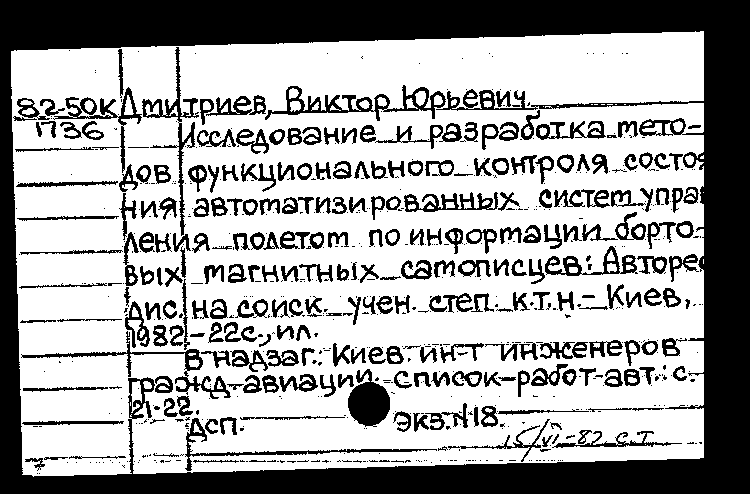 82-50К Дмитриев, Виктор Юрьевич.
1736 Исследование и разработка мето-
дов функционального контроля состоя
ния автоматизированных систем управ
ления полетом по информации борто-
вых магнитных самописцев: Автореф
дис. на соиск. учен. степ. к.т.н. – Киев,
1982 – 22с., ил.
В надзаг.: Киев. ин-т инженеров
гражд. авиации. Список работ авт.: с.
21-22.
ДСП. Экз. №18.
15/VI-82 с.т